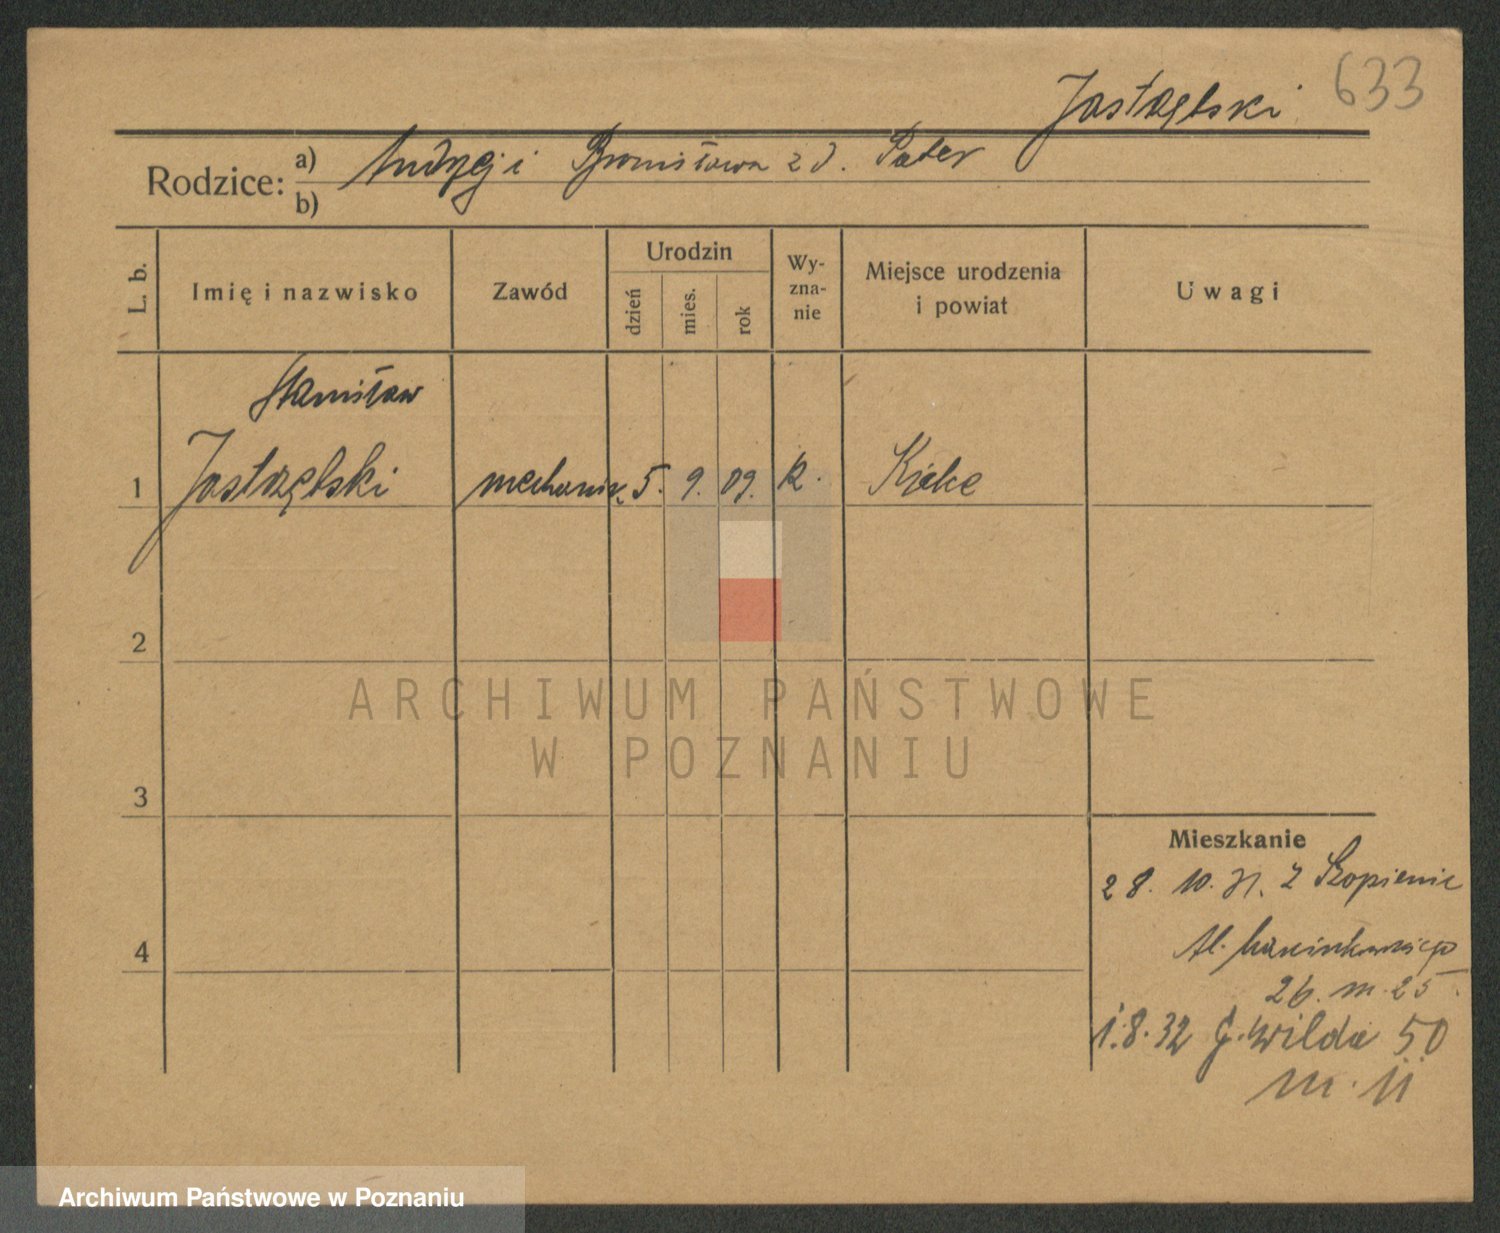 633
Jastrzębski
Rodzice: a) Andrzej i Bronisława z d. Pater
b)
L. b. Imię i nazwisko Zawód Urodzin dzień mies. rok Wy-zna-nie Miejsce urodzenia i powiat Uwagi
Stanisław
1 Jastrzębski mechanik 5. 9. 09. k. Kielce
2
ARCHIWUM PAŃSTWOWE
W POZNANIU
3
Mieszkanie
28. 10. 31. z Szopienic
4 Al. Marcinkowskiego
26. m. 25.
1.8.32 G. Wilda 50
m. 11
Archiwum Państwowe w Poznaniu